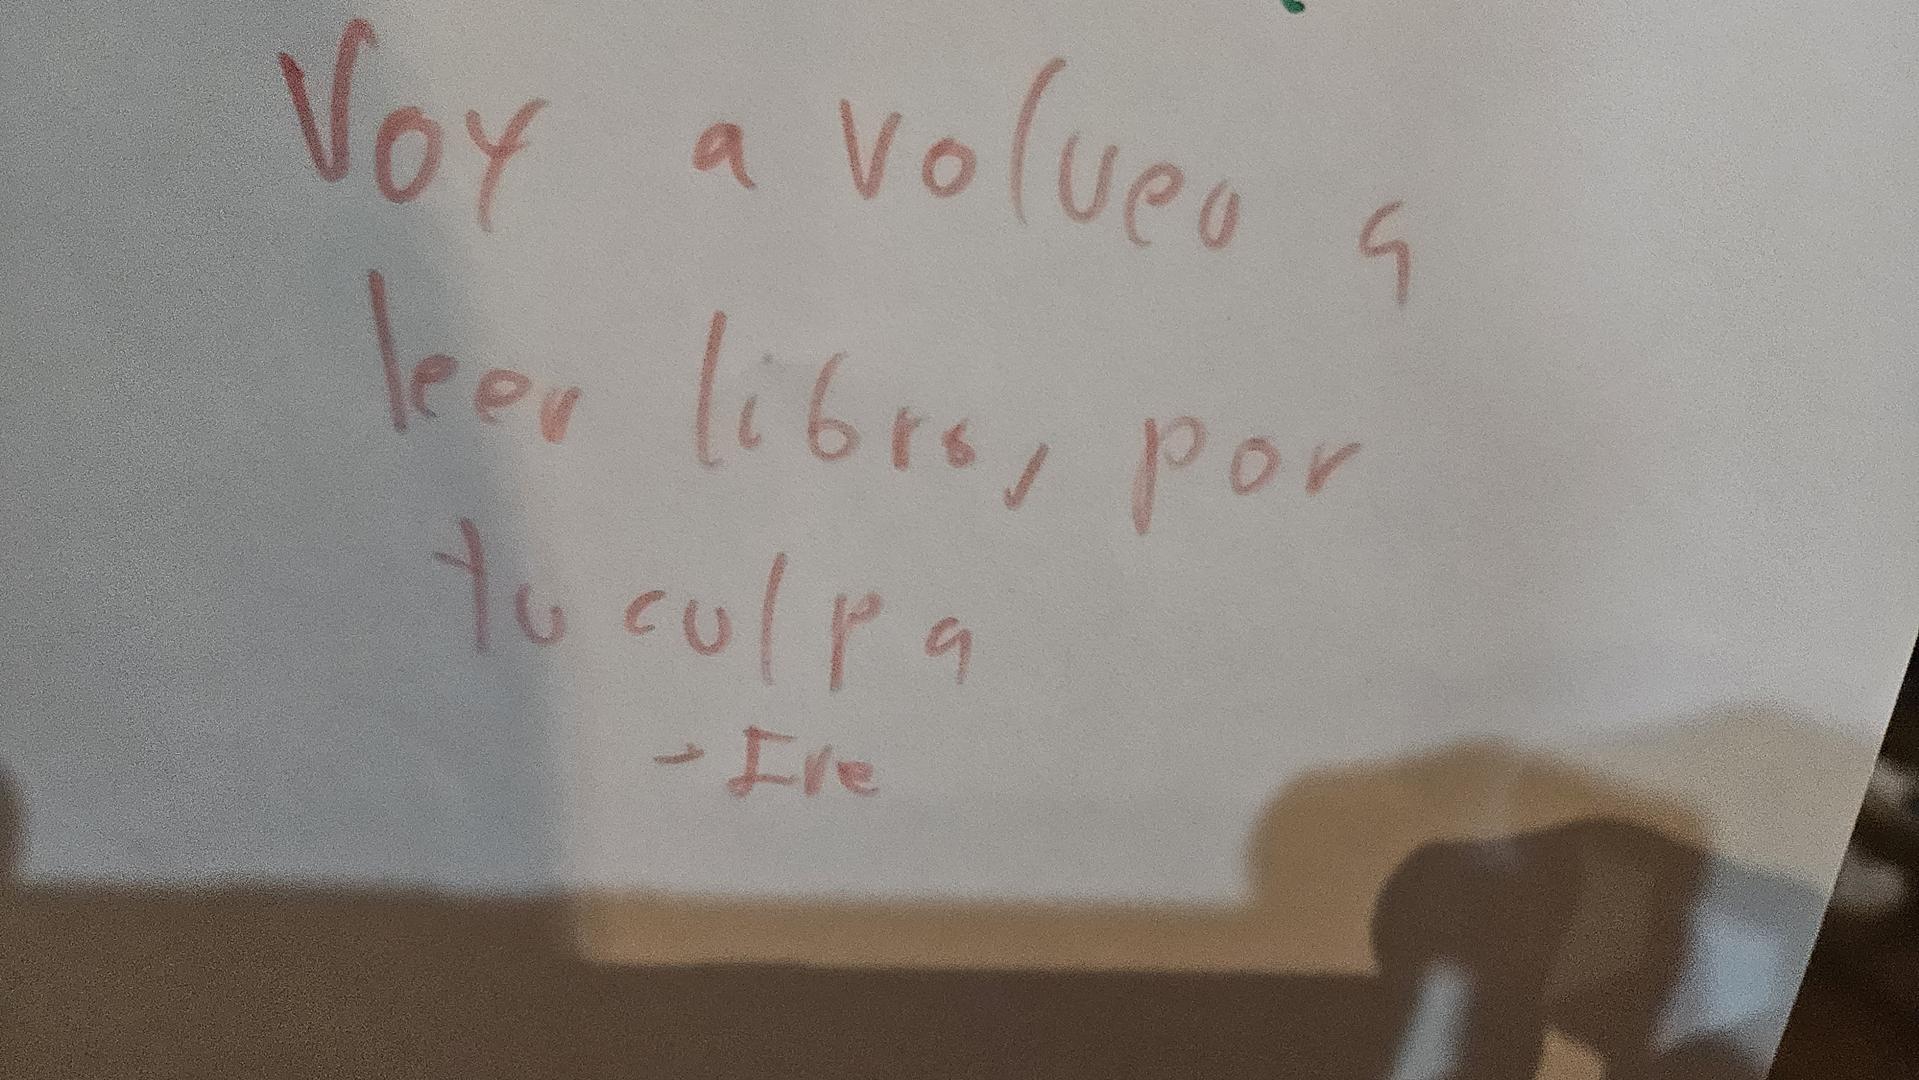 Voy a volver a
leer librs, por
tu culpa
- Ire